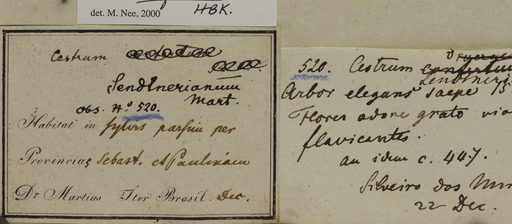 det. M. Nee, 2000 HBK.
Cestrum
Sendtnerianum
Mart.
obs. No 520.
Habitat in sylvis passim per
Provincias Sebast. et Paulinam
Dr Martius Iter Brasil. Dec.
520. Cestrum
Sendtneri
Arbor elegans saepe 15
Flores odore grato
flavicantes.
an idem c. 447.
Silveiro dos
22 Dec.